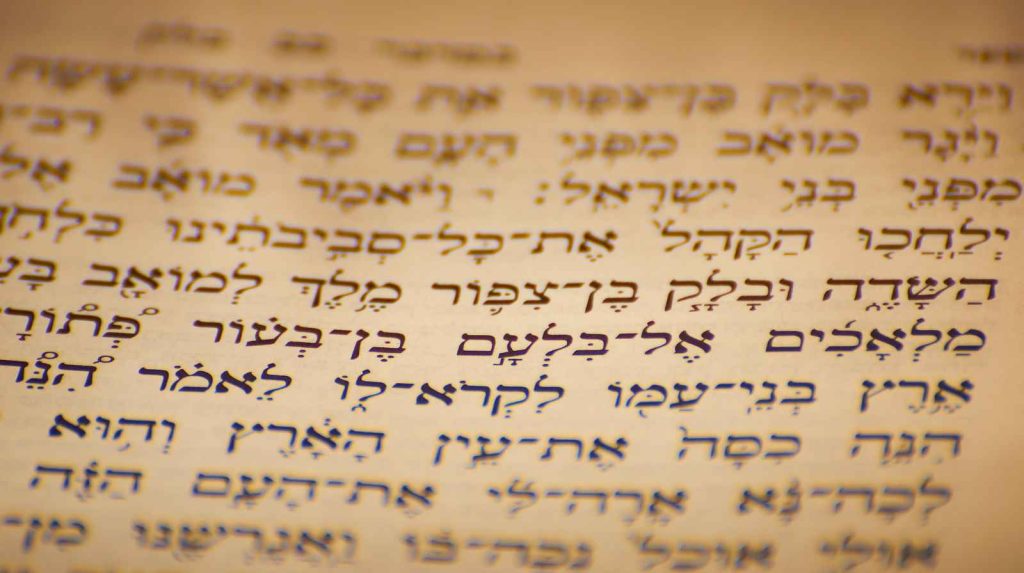 וַיַּ֥רְא בָּלָ֖ק בֶּן־צִפּ֑וֹר אֵ֛ת כָּל־אֲשֶׁר־עָשָׂ֥ה
וַיָּ֨גָר מוֹאָ֜ב מִפְּנֵ֥י הָעָ֛ם מְאֹ֖ד כִּ֣י רַב־
מִפְּנֵ֖י בְּנֵ֥י יִשְׂרָאֵֽל׃ וַיֹּ֨אמֶר מוֹאָ֜ב אֶל
יְלַחֲכ֤וּ הַקָּהָל֙ אֶת־כָּל־סְבִ֣יבֹתֵ֔ינוּ
הַשָּׂדֶ֑ה וּבָלָ֧ק בֶּן־צִפּ֛וֹר מֶ֥לֶךְ לְמוֹאָ֖ב
מַלְאָכִ֜ים אֶל־בִּלְעָ֣ם בֶּן־בְּע֗וֹר פְּ֠תוֹרָ
אֶ֥רֶץ בְּנֵי־עַמּ֖וֹ לִקְרֹא־ל֑וֹ לֵאמֹ֗ר
הִנֵּ֤ה כִסָּה֙ אֶת־עֵ֣ין הָאָ֔רֶץ וְה֥וּא
לְכָה־נָּ֨א אָֽרָה־לִּ֜י אֶת־הָעָ֣ם הַזֶּ֗ה
אוּלַ֤י אוּכַל֙ נַכֶּה־בּ֔וֹ וַאֲגָרְשֶׁ֖נּוּ מִן־